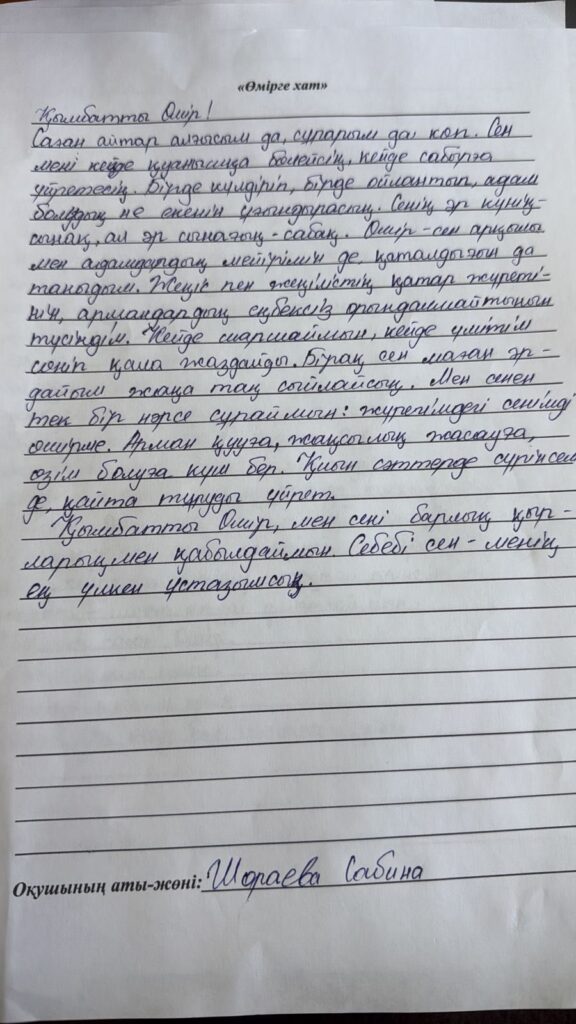 «Өмірге хат»
Қымбатты Өмір!
Саған айтар алғысым да, сұрарым да көп. Сен
мені кейде қуанышқа бөлейсің, кейде сабырға
үйретесің. Бірде күлдіріп, бірде ойлантып, адам
болудың не екенін ұғындырасың. Сенің әр күнің-
сынақ, ал әр сынағың - сабақ. Өмір - сен арқылы
мен адамдардың мейірімін де, қаталдығын да
таныдым. Жеңіс пен жеңілістің қатар жүреті-
нін, армандардың еңбексіз орындалмайтынын
түсіндім. Кейде шаршаймын, кейде үмітім
сөніп қала жаздайды. Бірақ сен маған әр-
дайым жаңа таң сыйлайсың. Мен сенен
тек бір нәрсе сұраймын: жүрегімдегі сенімді
өшірме. Арман қууға, жақсылық жасауға,
өзім болуға күш бер. Қиын сәттерде сүрінсем
де, қайта тұруды үйрет.
Қымбатты Өмір, мен сені барлық қыр-
ларыңмен қабылдаймын. Себебі сен - менің
ең үлкен ұстазымсың.
Оқушының аты-жөні: Шораева Сабина